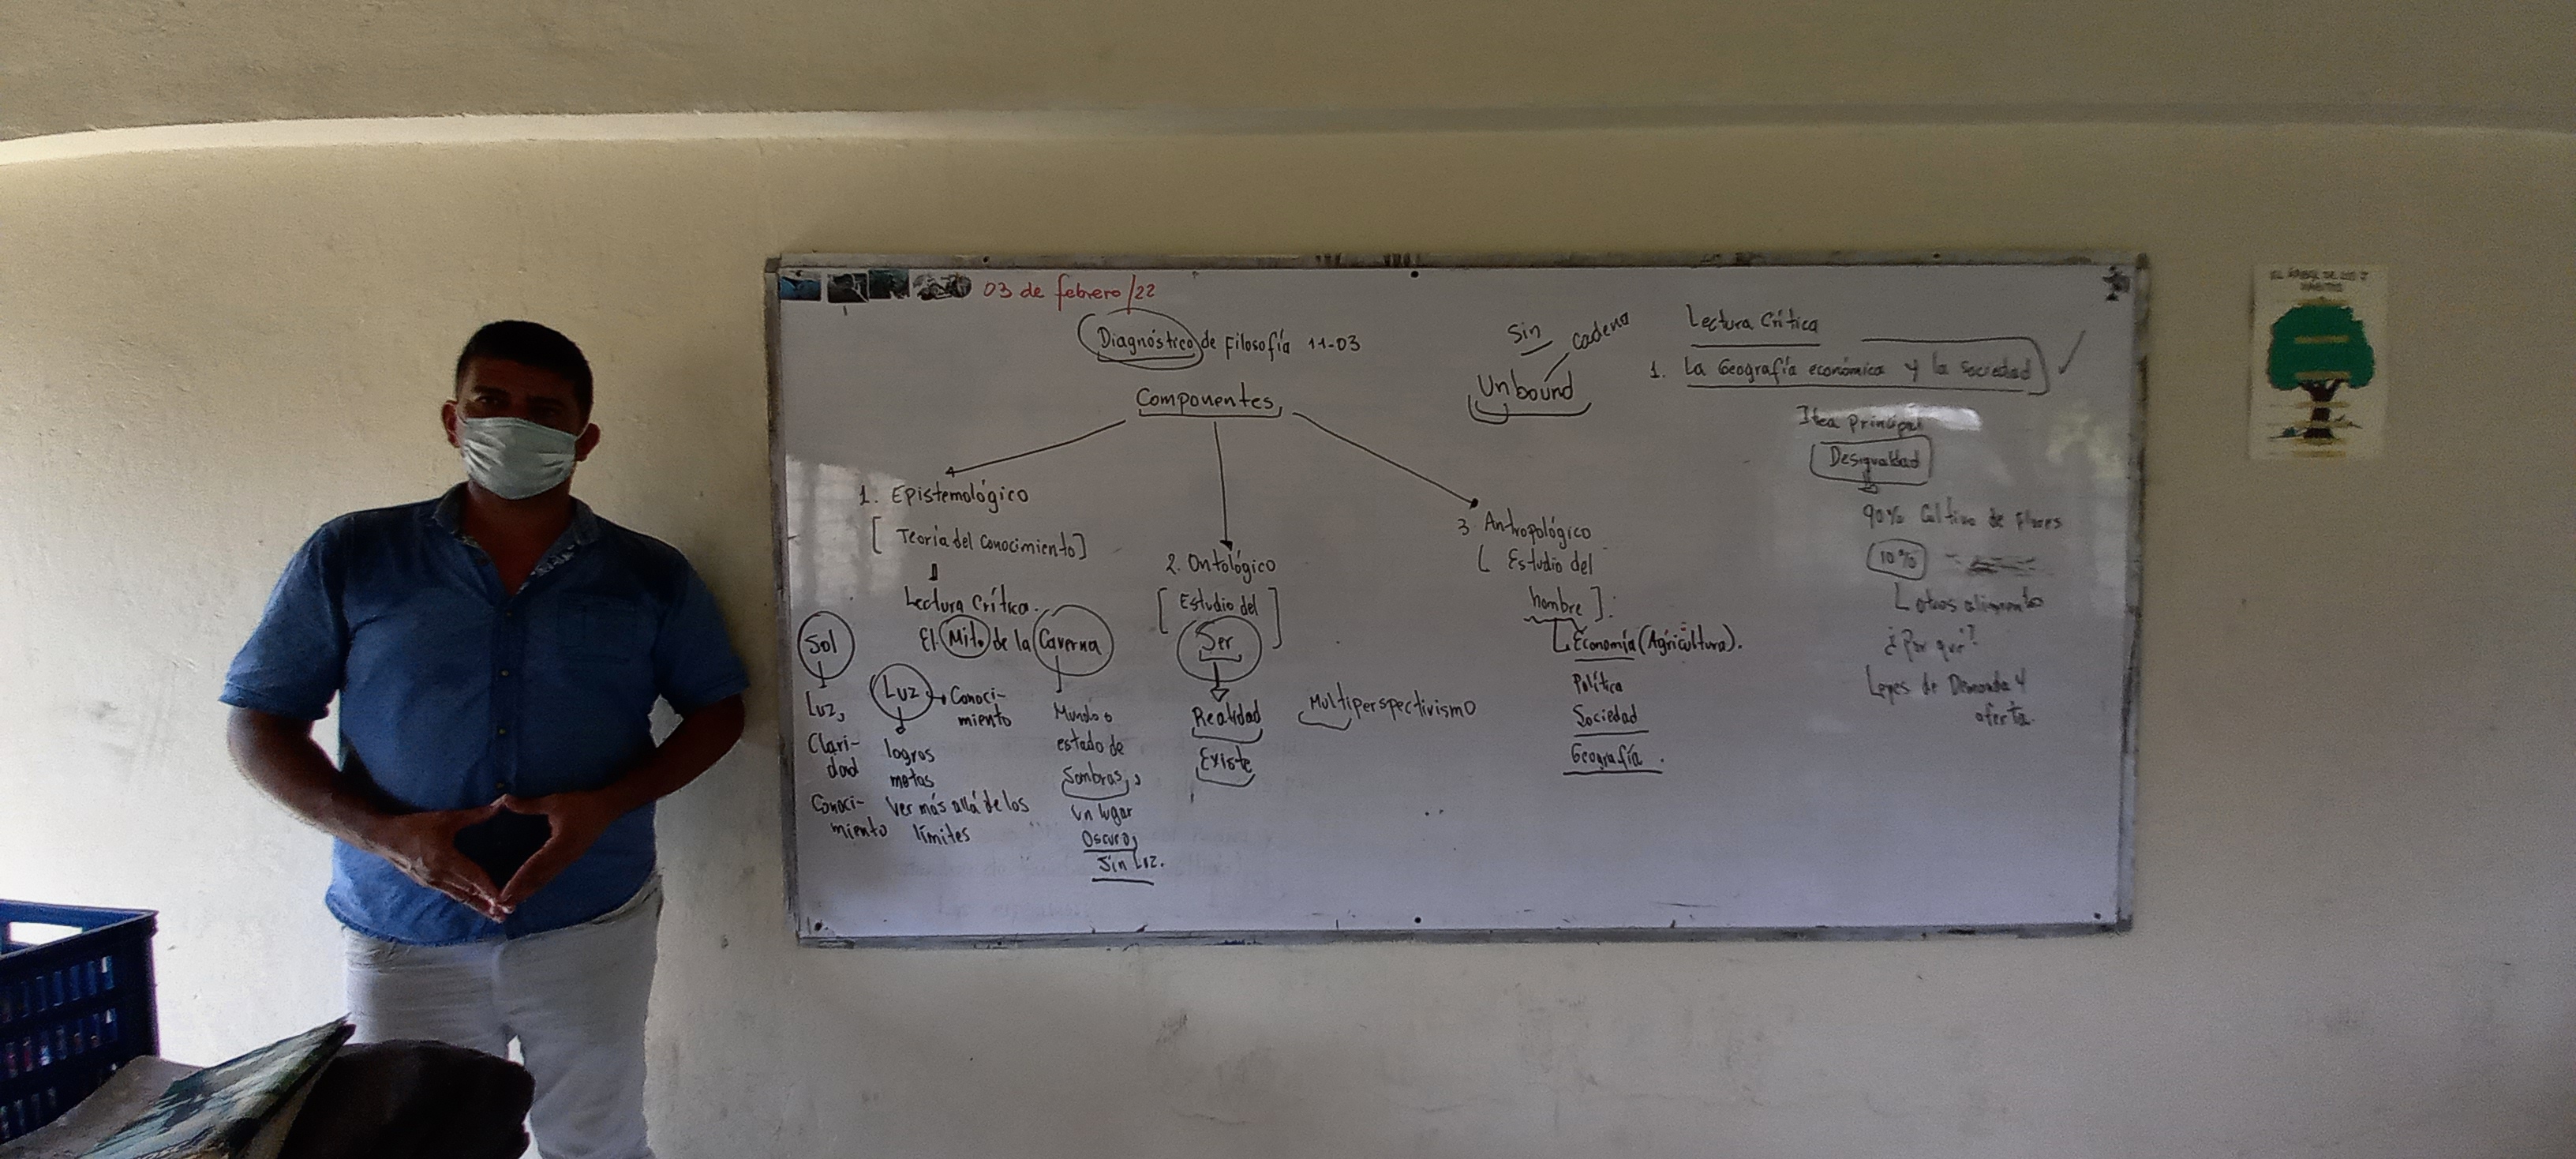 03 de febrero/22
Diagnóstico de Filosofía 11-03
Componentes
1. Epistemológico
[Teoría del Conocimiento]
Lectura Crítica.
El Mito de la Caverna
Sol
Luz,
Clari-
dad
Conoci-
miento
Luz
Conoci-
miento
logros
metas
Ver más allá de los
límites
Mundo o
estado de
Sombras,
Un lugar
Oscuro,
Sin Luz.
2. Ontológico
[Estudio del
Ser]
Realidad
Existe
Multiperspectivismo
3 Antropológico
[Estudio del
hombre].
Economía (Agricultura).
Política
Sociedad
Geografía.
Sin cadena
Unbound
Lectura Crítica
1. La Geografía económica y la sociedad
Idea Principal
Desigualdad
90% Cultivo de Flores
10%
otros alimento
¿Por qué?
Leyes de Demanda y
oferta.
EL ÁRBOL DE LOS 7
HÁBITOS